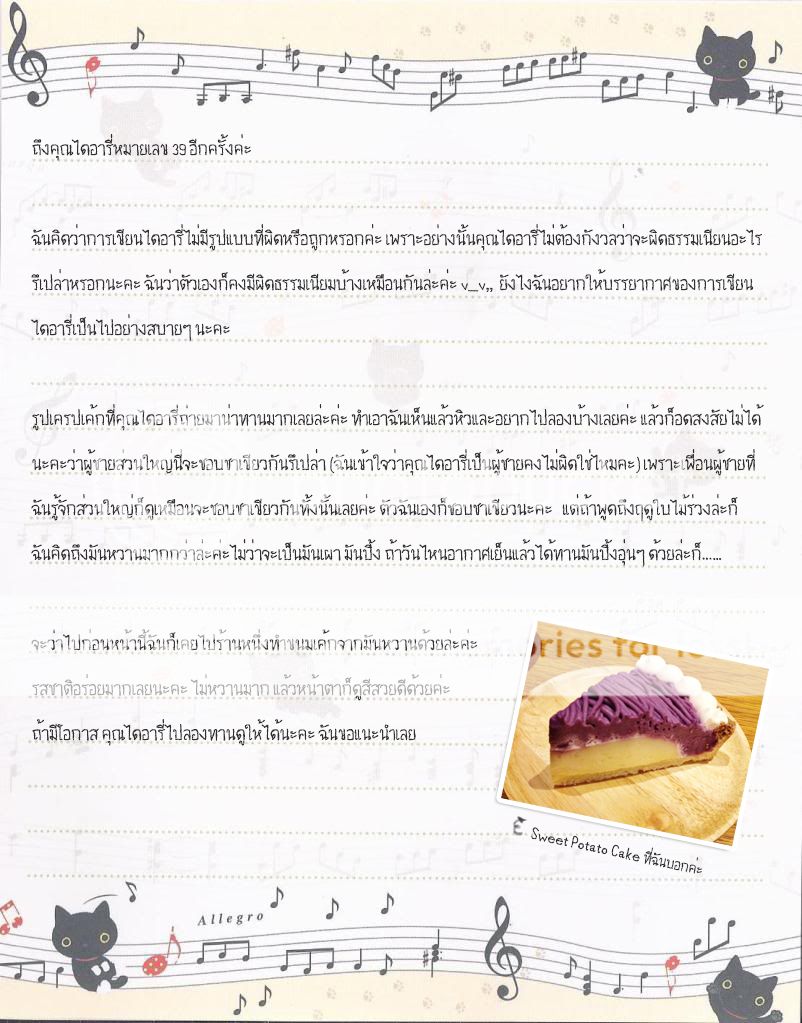 ถึงคุณไดอารี่หมายเลข 39 อีกครั้งค่ะ
ฉันคิดว่าการเขียนไดอารี่ไม่มีรูปแบบที่ผิดหรือถูกหรอกค่ะ เพราะอย่างนั้นคุณไดอารี่ไม่ต้องกังวลว่าจะผิดธรรมเนียนอะไร
รึเปล่าหรอกนะคะ ฉันว่าตัวเองก็คงมีผิดธรรมเนียมบ้างเหมือนกันล่ะค่ะ v_v,, ยังไงฉันอยากให้บรรยากาศของการเขียน
ไดอารี่เป็นไปอย่างสบายๆ นะคะ
รูปเครปเค้กที่คุณไดอารี่ถ่ายมาน่าทานมากเลยล่ะค่ะ ทำเอาฉันเห็นแล้วหิวและอยากไปลองบ้างเลยค่ะ แล้วก็อดสงสัยไม่ได้
นะคะว่าผู้ชายส่วนใหญ่นี่จะชอบชาเขียวกันรึเปล่า (ฉันเข้าใจว่าคุณไดอารี่เป็นผู้ชายคงไม่ผิดใช่ไหมคะ) เพราะเพื่อนผู้ชายที่
ฉันรู้จักส่วนใหญ่ก็ดูเหมือนจะชอบชาเขียวกันทั้งนั้นเลยค่ะ ตัวฉันเองก็ชอบชาเขียวนะคะ แต่ถ้าพูดถึงฤดูใบไม้ร่วงล่ะก็
ฉันคิดถึงมันหวานมากกว่าล่ะค่ะ ไม่ว่าจะเป็นมันเผา มันปิ้ง ถ้าวันไหนอากาศเย็นแล้วได้ทานมันปิ้งอุ่นๆ ด้วยล่ะก็......
จะว่าไปก่อนหน้านี้ฉันก็เคยไปร้านหนึ่งทำขนมเค้กจากมันหวานด้วยล่ะค่ะ
รสชาติอร่อยมากเลยนะคะ ไม่หวานมาก แล้วหน้าตาก็ดูสีสวยดีด้วยค่ะ
ถ้ามีโอกาส คุณไดอารี่ไปลองทานดูให้ได้นะคะ ฉันขอแนะนำเลย
Sweet Potato Cake ที่ฉันบอกค่ะ
Allegro